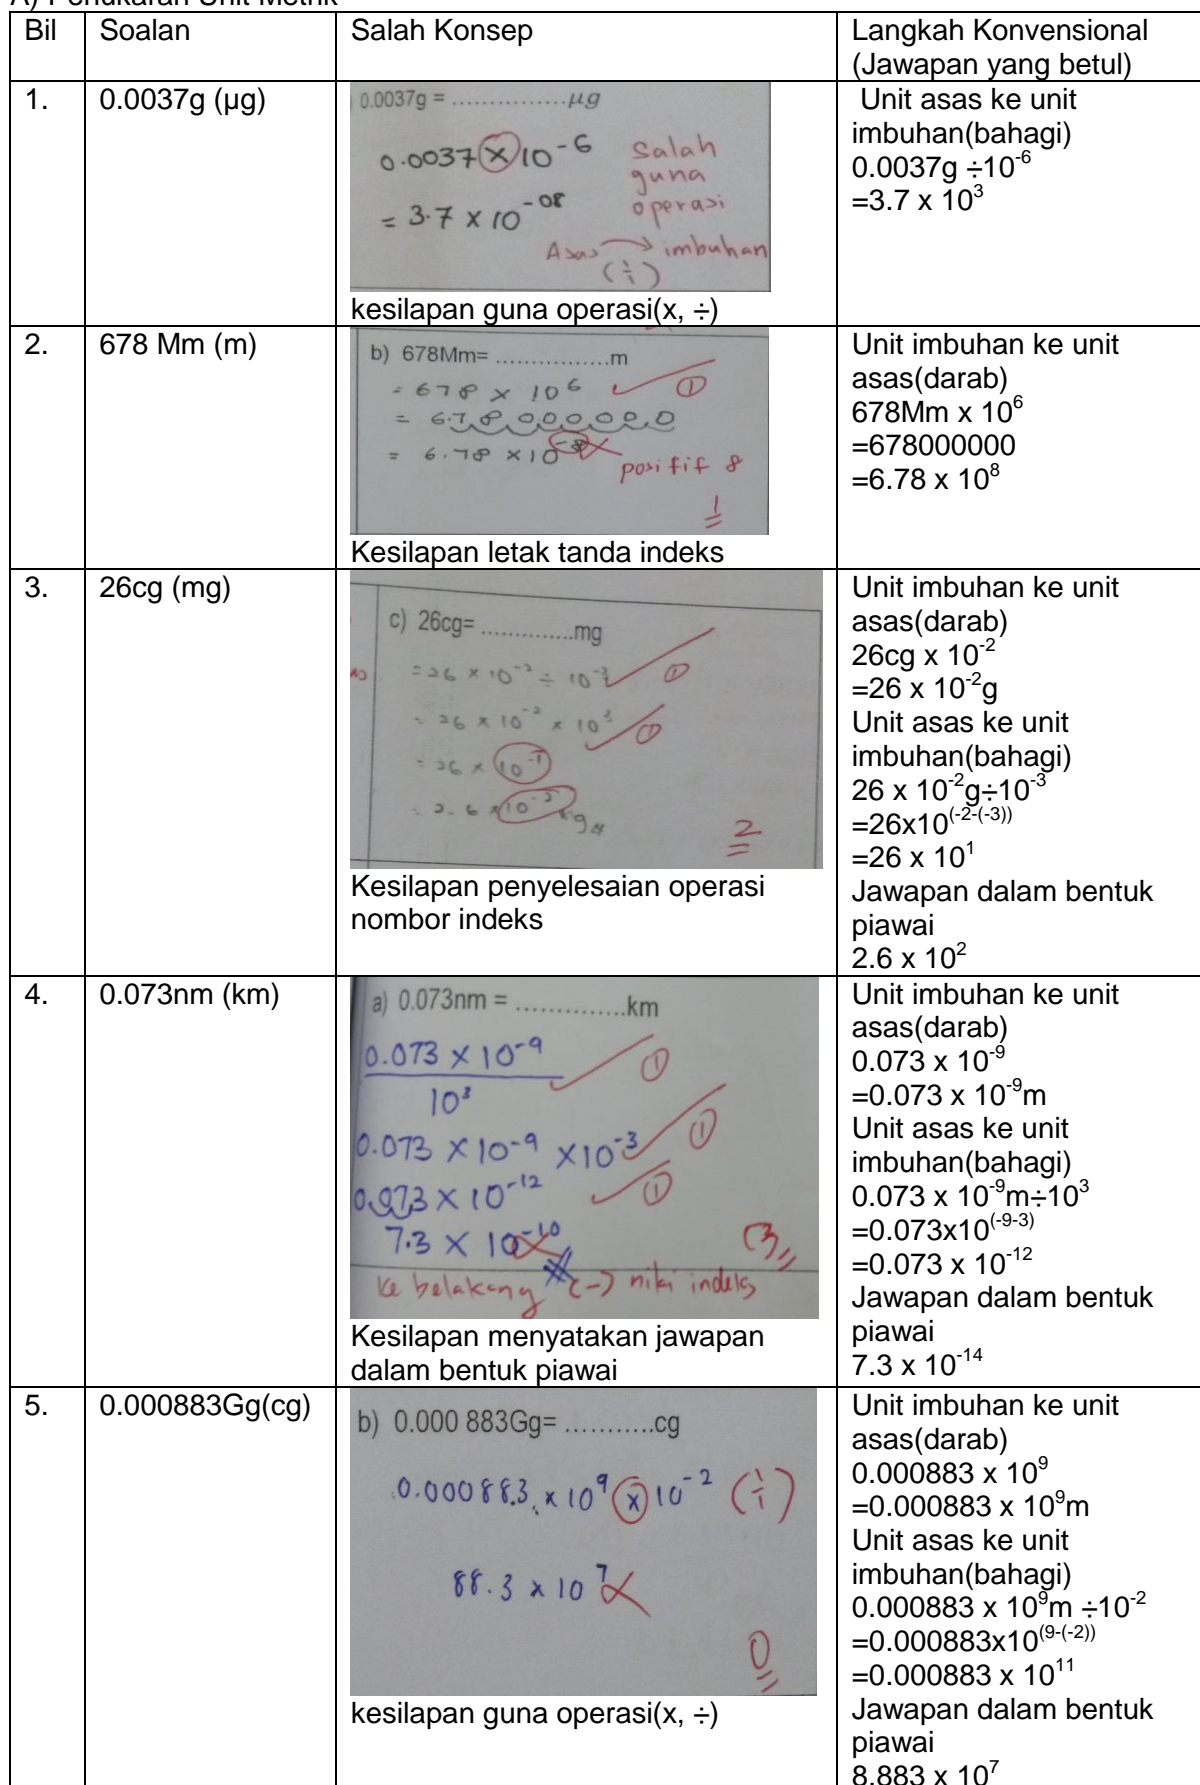 A) Penukaran Unit Metrik
Bil Soalan Salah Konsep Langkah Konvensional
(Jawapan yang betul)
1. 0.0037g (µg)
0.0037g = ...............µg
0.0037 x 10⁻⁶ Salah
guna
operasi
= 3.7 x 10⁻⁰⁸
Asas → imbuhan
(÷)
kesilapan guna operasi(x, ÷)
Unit asas ke unit
imbuhan(bahagi)
0.0037g ÷10⁻⁶
=3.7 x 10³
2. 678 Mm (m)
b) 678Mm= ................m
= 678 x 10⁶ ①
= 6.78 000000
= 6.78 x 10⁻⁸
positif 8
1
Kesilapan letak tanda indeks
Unit imbuhan ke unit
asas(darab)
678Mm x 10⁶
=678000000
=6.78 x 10⁸
3. 26cg (mg)
c) 26cg= ..............mg
= 26 x 10⁻² ÷ 10⁻³ ①
= 26 x 10⁻² x 10³ ①
= 26 x 10⁻¹
2
Kesilapan penyelesaian operasi
nombor indeks
Unit imbuhan ke unit
asas(darab)
26cg x 10⁻²
=26 x 10⁻²g
Unit asas ke unit
imbuhan(bahagi)
26 x 10⁻²g÷10⁻³
=26x10⁽⁻²⁻⁽⁻³⁾⁾
=26 x 10¹
Jawapan dalam bentuk
piawai
2.6 x 10²
4. 0.073nm (km)
a) 0.073nm = ..............km
0.073 x 10⁻⁹ ①
10³
0.073 x 10⁻⁹ x10⁻³ ①
0.073 x 10⁻¹² ①
7.3 x 10⁻¹⁰ (3)
ke belakang (-) nilai indeks
Kesilapan menyatakan jawapan
dalam bentuk piawai
Unit imbuhan ke unit
asas(darab)
0.073 x 10⁻⁹
=0.073 x 10⁻⁹m
Unit asas ke unit
imbuhan(bahagi)
0.073 x 10⁻⁹m÷10³
=0.073x10⁽⁻⁹⁻³⁾
=0.073 x 10⁻¹²
Jawapan dalam bentuk
piawai
7.3 x 10⁻¹⁴
5. 0.000883Gg(cg)
b) 0.000 883Gg= ...........cg
0.000883 x 10⁹ x 10⁻² (÷)
88.3 x 10⁷
0
kesilapan guna operasi(x, ÷)
Unit imbuhan ke unit
asas(darab)
0.000883 x 10⁹
=0.000883 x 10⁹m
Unit asas ke unit
imbuhan(bahagi)
0.000883 x 10⁹m ÷10⁻²
=0.000883x10⁽⁹⁻⁽⁻²⁾⁾
=0.000883 x 10¹¹
Jawapan dalam bentuk
piawai
8.883 x 10⁷